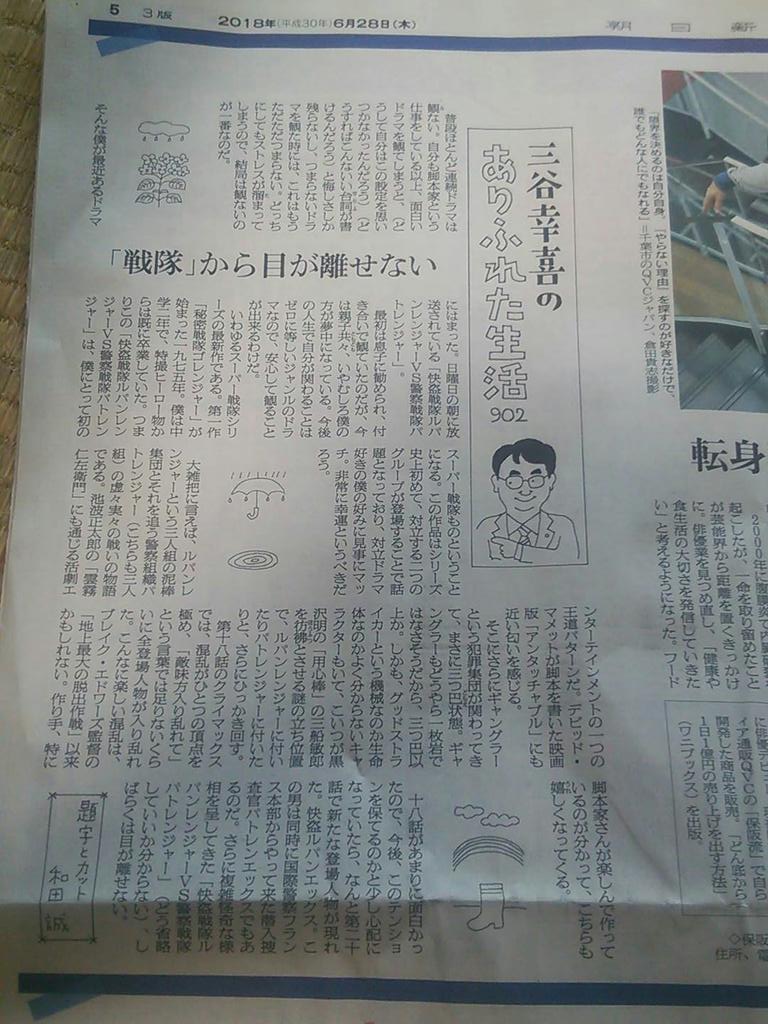 5
3版
2018年(平成30年)6月28日(木)
朝日新
三谷幸喜の
ありふれた生活
902
「戦隊」から目が離せない
普段ほとんど連続ドラマは
観ない。自分も脚本家という
仕事をしている以上、面白い
ドラマを観てしまうと、(ど
うして自分はこの設定を思い
つかなかったんだろう)(ど
うすればこんないい台詞が書
けるんだろう)と悔しさしか
残らないし、つまらないドラ
マを観た時には、これはもう
ただただつまらない。どっち
にしてもストレスが溜まって
しまうので、結局は観ないの
が一番なのだ。
そんな僕が最近あるドラマ
にはまった。日曜日の朝に放
送されている「快盗戦隊ルパ
ンレンジャーVS警察戦隊パ
トレンジャー」。
最初は息子に勧められ、付
き合いで観ていたのだが、今
は親子共々、いやむしろ僕の
方が夢中になっている。今後
の人生で自分が関わることは
ゼロに等しいジャンルのドラ
マなので、安心して観ること
が出来るわけだ。
いわゆるスーパー戦隊シリ
ーズの最新作である。第一作
「秘密戦隊ゴレンジャー」が
始まった一九七五年。僕は中
学二年で、特撮ヒーロー物か
らは既に卒業していた。つま
りこの「快盗戦隊ルパンレン
ジャーVS警察戦隊パトレン
ジャー」は、僕にとって初の
スーパー戦隊ものということ
になる。この作品はシリーズ
史上初めて、対立する二つの
グループが登場することで話
題となっており、対立ドラマ
好きの僕の好みに見事にマッ
チ。非常に幸運というべきだ
ろう。
大雑把に言えば、ルパンレ
ンジャーという三人組の泥棒
集団とそれを追う警察組織パ
トレンジャー(こちらも三人
組)の虚々実々の戦いの物語
である。池波正太郎の「雲霧
仁左衛門」にも通じる活劇エ
ンターテインメントの一つの
王道パターンだ。デビッド・
マメットが脚本を書いた映画
版「アンタッチャブル」にも
近い匂いを感じる。
そこにさらにギャングラー
という犯罪集団が関わってき
て、まさに三つ巴状態。ギャ
ングラーもどうやら一枚岩で
はなさそうだから、三つ巴以
上か。しかも、グッドストラ
イカーという機械なのか生命
体なのかよく分からないキャ
ラクターもいて、こいつが黒
沢明の「用心棒」の三船敏郎
を彷彿とさせる謎の立ち位置
で、ルパンレンジャーに付い
たりパトレンジャーに付いた
りと、さらにひっかき回す。
第十八話のクライマックス
では、混乱がひとつの頂点を
極め、「敵味方入り乱れて」
という言葉では足りないくら
いに全登場人物が入り乱れ
た。こんなに楽しい混乱は、
ブレイク・エドワーズ監督の
「地上最大の脱出作戦」以来
かもしれない。作り手、特に
脚本家さんが楽しんで作って
いるのが分かって、こちらも
嬉しくなってくる。
十八話があまりに面白かっ
たので、今後、このテンショ
ンを保てるのかと少し心配に
なっていたら、なんと第二十
話で新たな登場人物が現れ
た。快盗ルパンエックス。こ
の男は同時に国際警察フラン
ス本部からやって来た潜入捜
査官パトレンエックスでもあ
るのだ。さらに複雑怪奇な様
相を呈してきた「快盗戦隊ル
パンレンジャーVS警察戦隊
パトレンジャー」(どう省略
していいか分からない)、し
ばらくは目が離せない。
題字とカット
和田誠
「限界を決めるのは自分自身。『やらない理由』を探すのが好きなだけで、
誰でもどんな人にでもなれる」=千葉市のQVCジャパン、倉田貴志撮影
転身
起こしたが、一命を取り留めたこと
が芸能界から距離を置くきっかけ
に。俳優業を見つめ直し、「健康や
食生活の大切さを発信していきた
い」と考えるようになった。フード
に俳優デビュー
ィア通販QVCの「保阪流」で自ら
開発した商品を販売。「どん底から
1日1億円の売り上げを出す方法」
(ワニブックス)を出版。
◇保阪
住所、電